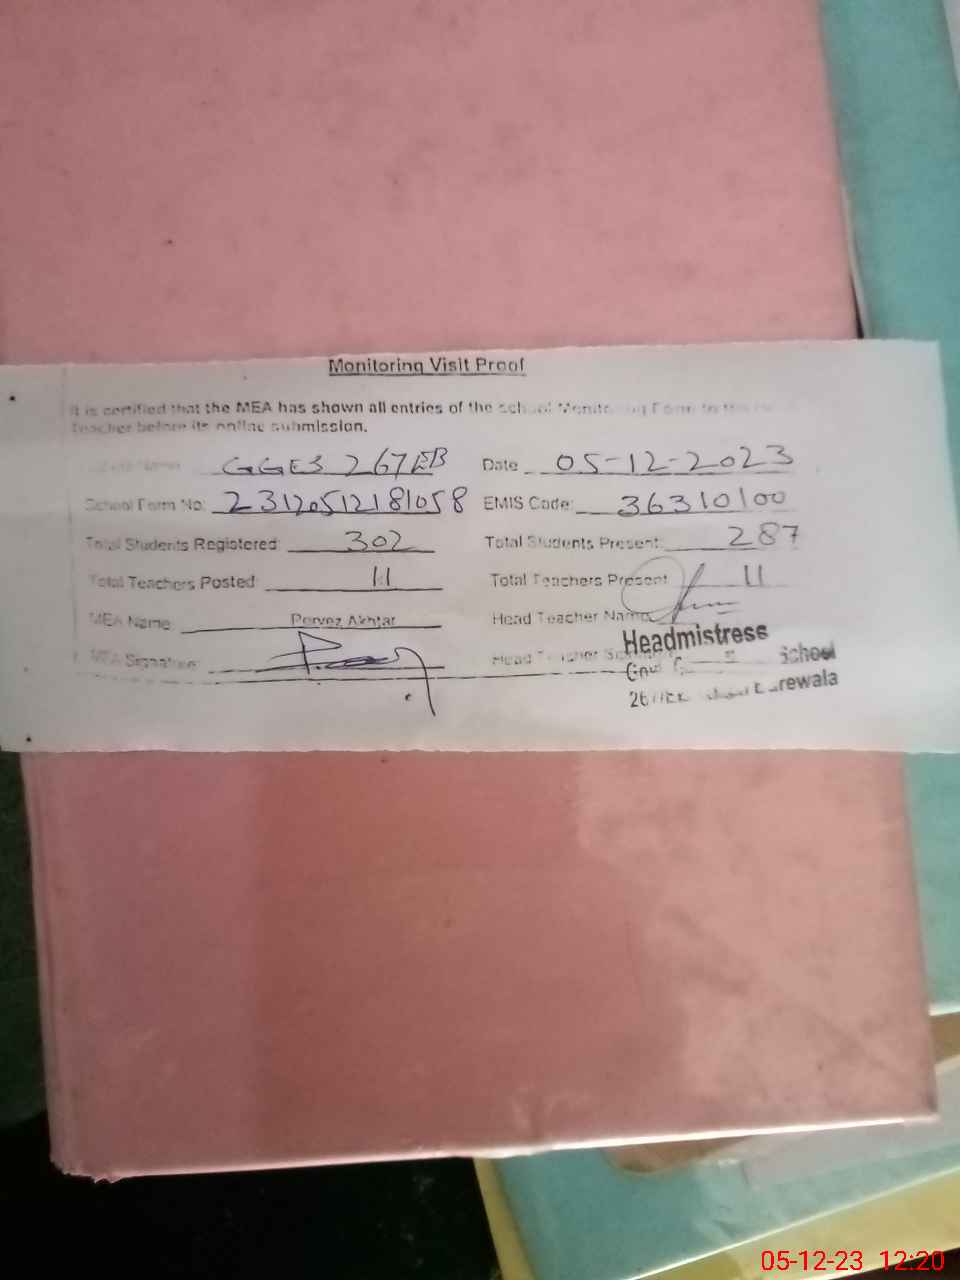 Monitoring Visit Proof
It is certified that the MEA has shown all entries of the school Monitoring Form to the
Teacher before its online submission.
Name GGES 267EB Date 05-12-2023
School Form No: 23120512181058 EMIS Code: 36310100
Total Students Registered: 302 Total Students Present: 287
Total Teachers Posted: 11 Total Teachers Present 11
MEA Name Pervez Akhtar Head Teacher Name
MEA Signature: Head Teacher
Headmistress
School
Burewala
05-12-23 12:20